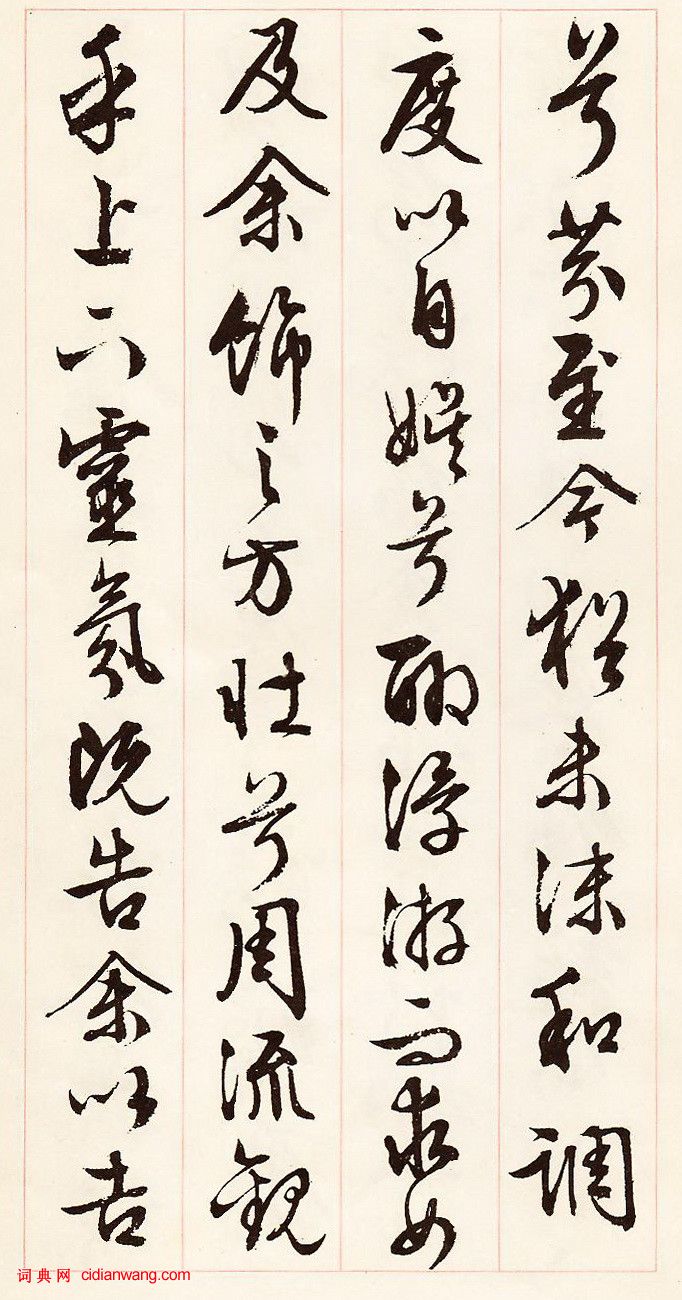 兮芬至今猶未沬和調
度以自娛兮聊浮游而求女
及余飾之方壯兮周流觀
乎上下靈氛既告余以吉
词典网 cidianwang.com